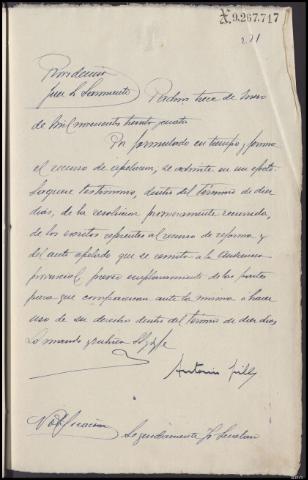 A.9.267,717
271
Providencia
Juez Sr Sarmiento
de mil novecientos treinta y cuatro
Por formulado en tiempo y forma
el recurso de apelacion, se admite en un efecto
testimonio, dentro del termino de diez
dias, de la resolucion primeramente recurrida,
de los escritos referentes al recurso de reforma y
del auto apelado que se remita a la Audiencia
provincial previo emplazamiento de las partes
para que comparezcan ante la misma a hacer
uso de su derecho dentro del termino de diez dias
Lo mando y rubrica SSª doy fe
Antonio
Notificacion
Seguidamente yo Secretario